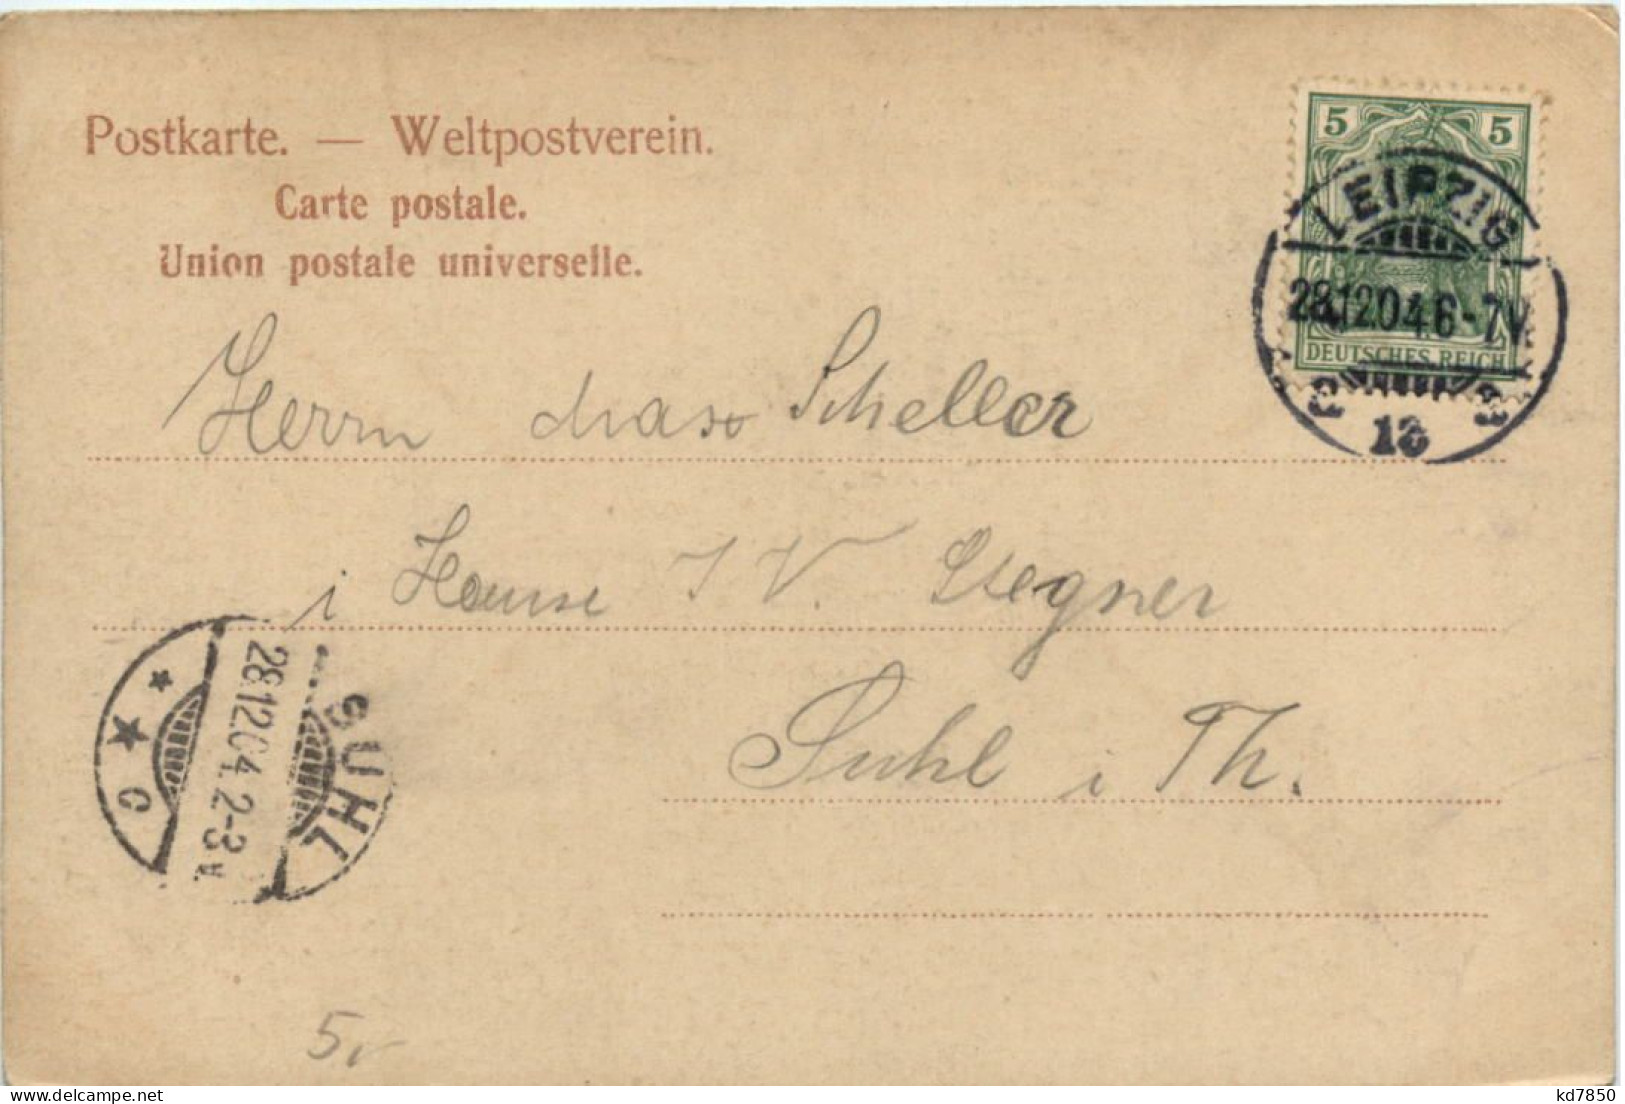 Postkarte. — Weltpostverein.
Carte postale.
Union postale universelle.
5 5
DEUTSCHES REICH
LEIPZIG
28.12.04.6-7V.
13
Herrn Max Scheller
i Hause J V. Stegner
Suhl i Th.
SUHL
28.12.04.2-3 V.
C
5,-
delcampe.net
kd7850